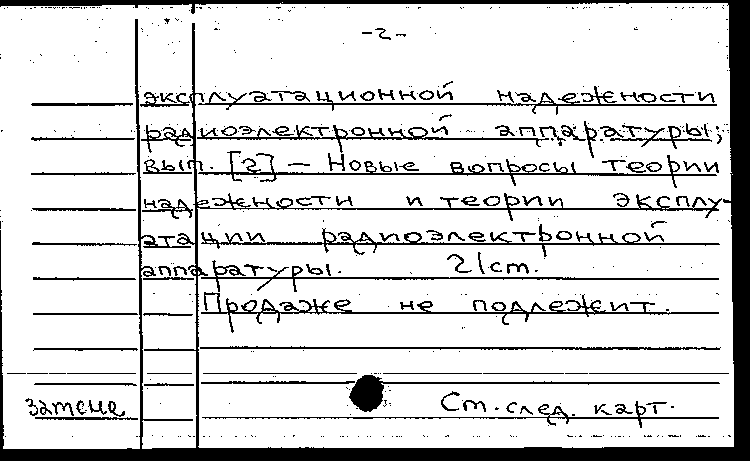 -2-
эксплуатационной надежности
радиоэлектронной аппаратуры;
вып. [2] — Новые вопросы теории
надежности и теории эксплу-
атации радиоэлектронной
аппаратуры. 21ст.
Продаже не подлежит.
Замена Ст. след. карт.